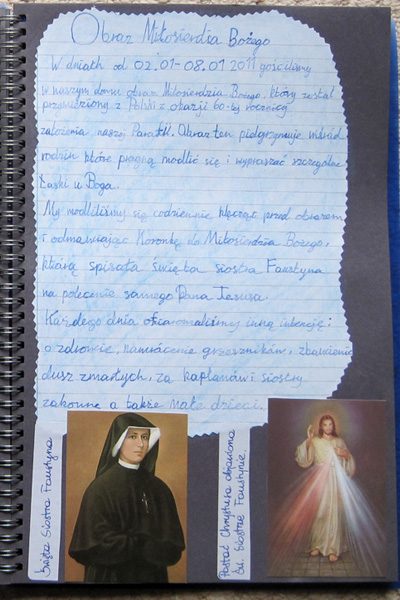 Obraz Miłosierdzia Bożego
W dniach od 02.01-08.01 2011 gościliśmy
w naszym domu obraz Miłosierdzia Bożego, który został
przywieziony z Polski z okazji 60-tej rocznicy
założenia naszej Parafii. Obraz ten pielgrzymuje wśród
rodzin które pragną modlić się i wypraszać szczególne
Łaski u Boga.
My modliliśmy się codziennie klęcząc przed obrazem
i odmawiając Koronkę do Miłosierdzia Bożego,
którą spisała święta siostra Faustyna
na polecenie samego Pana Jezusa.
Każdego dnia ofiarowaliśmy inną intencję:
o zdrowie, nawrócenie grzeszników, zbawienie
dusz zmarłych, za kapłanów i siostry
zakonne a także małe dzieci.
Święta Siostra Faustyna
Postać Chrystusa objawiona
Św. Siostrze Faustynie.